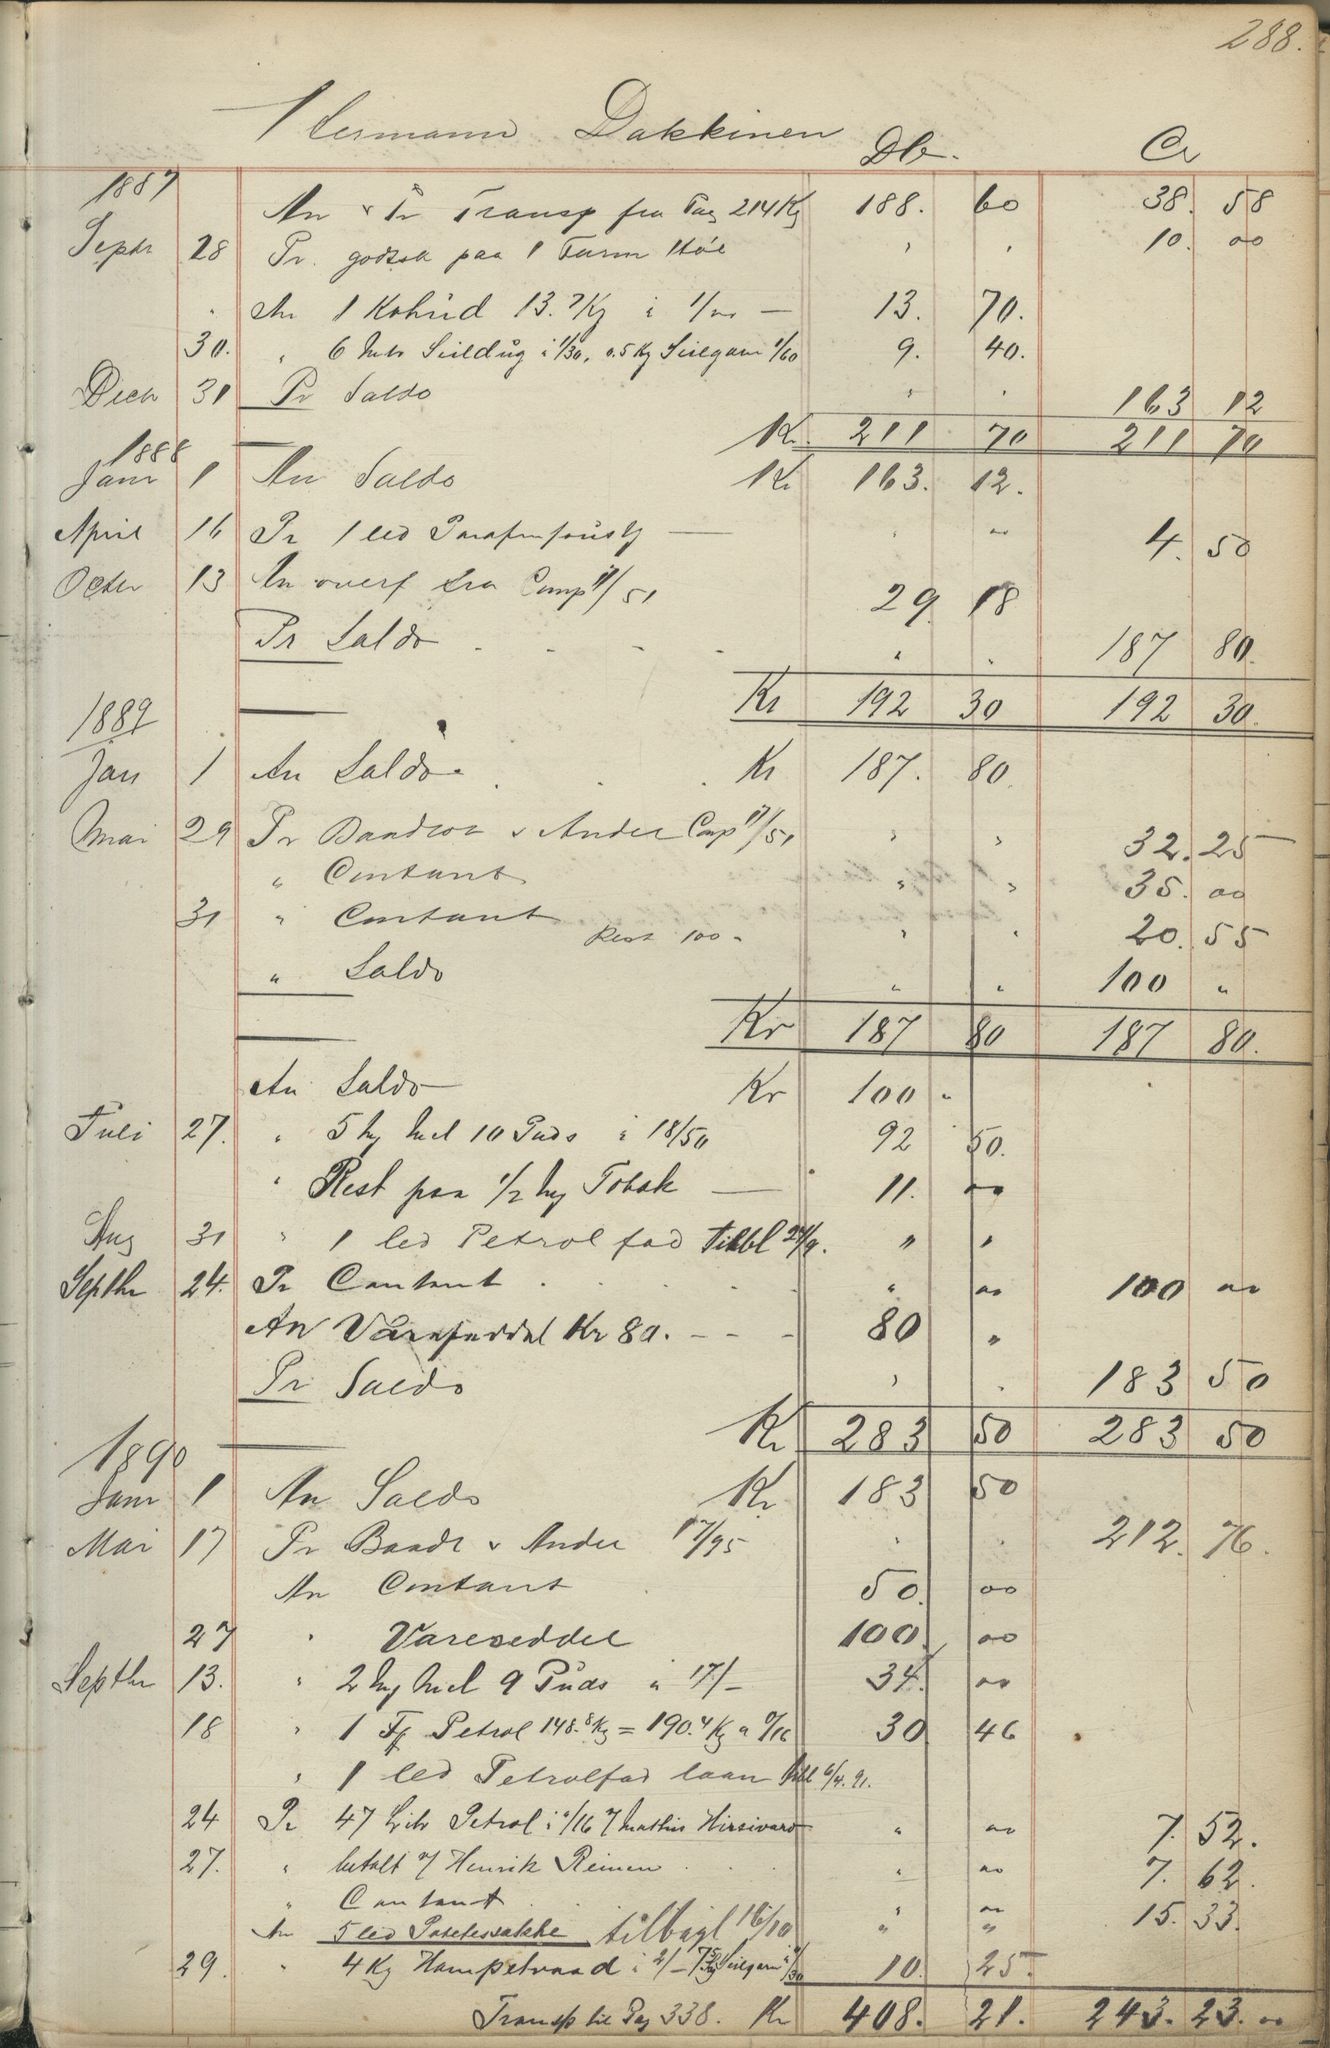 288.
Hermann Dakkinen
Db. Cr
1887 An & Pr Transp fra Pag 214 Kr 188. 60 38. 58
Septr 28 Pr. godsk paa 1 Tarm 10. 00
" An 1 Kohud 13.7 Kg à 1/00 — 13. 70.
30. " 6 Mtr Seildug à 1/30, 0.5 Kg Seilgarn 1/60 9. 40.
Decb 31 Pr Saldo " " 163 12
Kr. 211 70 211 70
1888
Janr 1 An Saldo Kr 163. 12.
April 16 Pr 1 led — " " 4. 50
Octbr 13 An overf fra Comp 17/51 29. 18
Pr Saldo " " 187 80.
Kr 192 30 192 30.
1889
Jan 1 An Saldo Kr 187. 80
Mai 29 Pr Baadlot & Andel Comp 17/51 " " 32. 25
" Contant " " 35. 00
31 " Contant " " 20. 55
Rest 100 -
" Saldo " " 100 "
Kr 187 80 187 80.
An Saldo Kr 100 "
Juli 27. " 5 Mg Mel 10 Puds à 18/50 92 50.
" Rest paa 1/2 Mg Tobak — 11. 00
Aug 31 " 1 led Petrolfad tilbl 24/9. " "
Septbr 24. Pr Contant " 00 100 00
An Vareseddel Kr 80. - - - 80 "
Pr Saldo " " 183 50
Kr 283 50 283 50
1890
Janr 1 An Saldo Kr 183 50
Mai 17 Pr Baadl & Andel 17/95 " " 212. 76.
An Contant 50. 00
27 " Vareseddel 100. 00
Septbr 13. " 2 Mg Mel 9 Puds à 17/— 34. 00
18 " 1 Fj Petrol 148.8 Kg = 190.4 Kg à 0/16 30 46
" 1 led Petrolfad laan tibl 6/4. 91.
24 Pr 47 Litr Petrol à 0/16 Mathis Hirsivara " 00 7. 52.
27. " betalt v/ Henrik Reinen " 00 7. 62
" Contant " 00 15. 33.
An 5 led Potetessække tilbagl 16/10 " "
29. " 4 Kg Hampetraad à 2/— Seilgarn 10. 25.
Transp til Pag 338. Kr 408. 21. 243. 23. 00